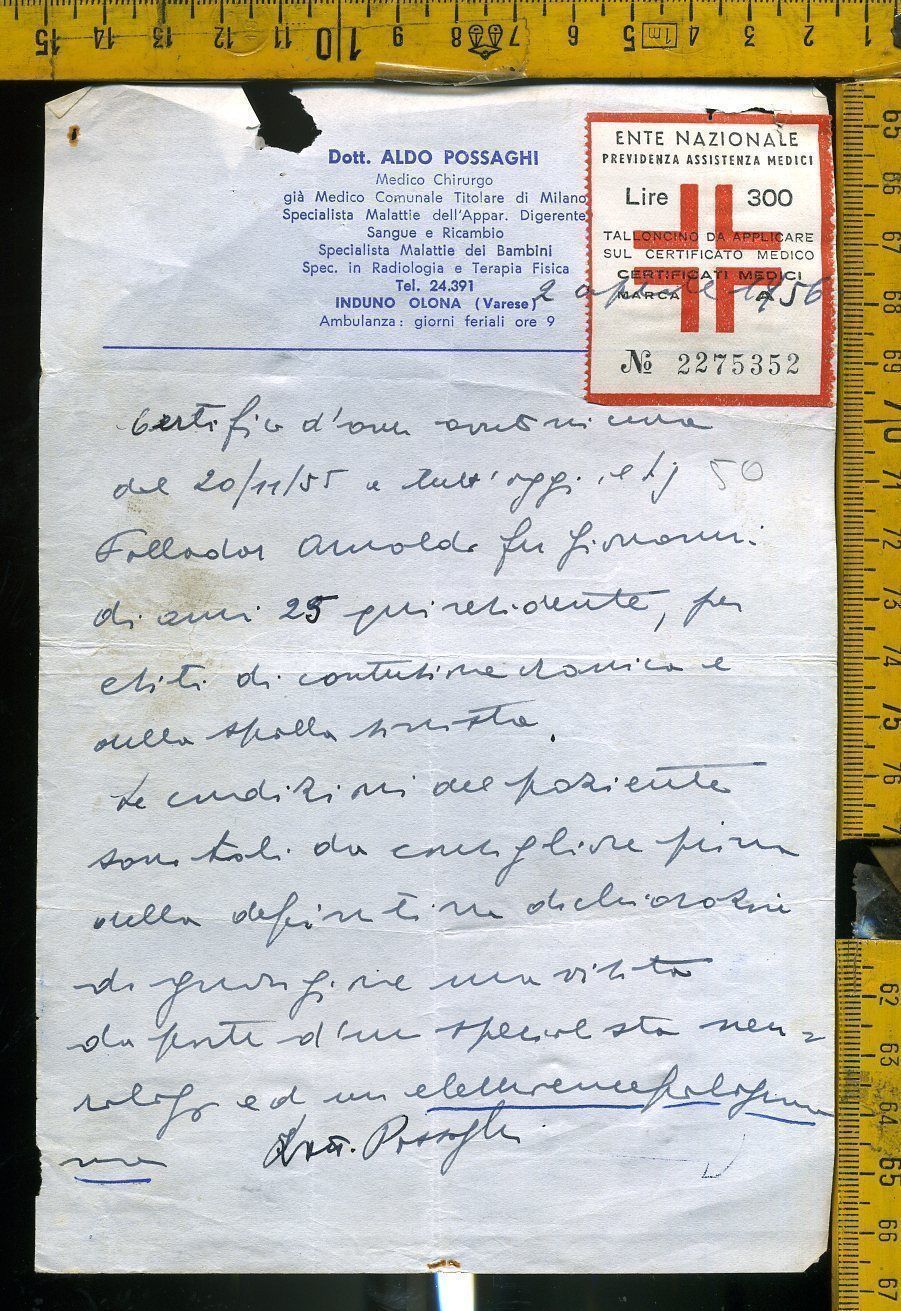 Dott. ALDO POSSAGHI
Medico Chirurgo
già Medico Comunale Titolare di Milano
Specialista Malattie dell'Appar. Digerente
Sangue e Ricambio
Specialista Malattie dei Bambini
Spec. in Radiologia e Terapia Fisica
Tel. 24.391
INDUNO OLONA (Varese)
Ambulanza: giorni feriali ore 9
ENTE NAZIONALE
PREVIDENZA ASSISTENZA MEDICI
Lire 300
TALLONCINO DA APPLICARE
SUL CERTIFICATO MEDICO
CERTIFICATI MEDICI
MARCA A
№ 2275352
2 aprile 1956
Certifico d'aver avuto in cura
dal 20/11/55 a tutt'oggi il Sig
50
Follador Arnoldo fu Giovanni
di anni 25 qui residente, per
esiti di contusione cranica e
della spalla sinistra.
Le condizioni del paziente
sono tali da consigliare prima
della definitiva dichiarazione
di guarigione una visita
da parte d'un specialista neu=
rologo ed un elettroencefalogram
ma
Dott. Possaghi